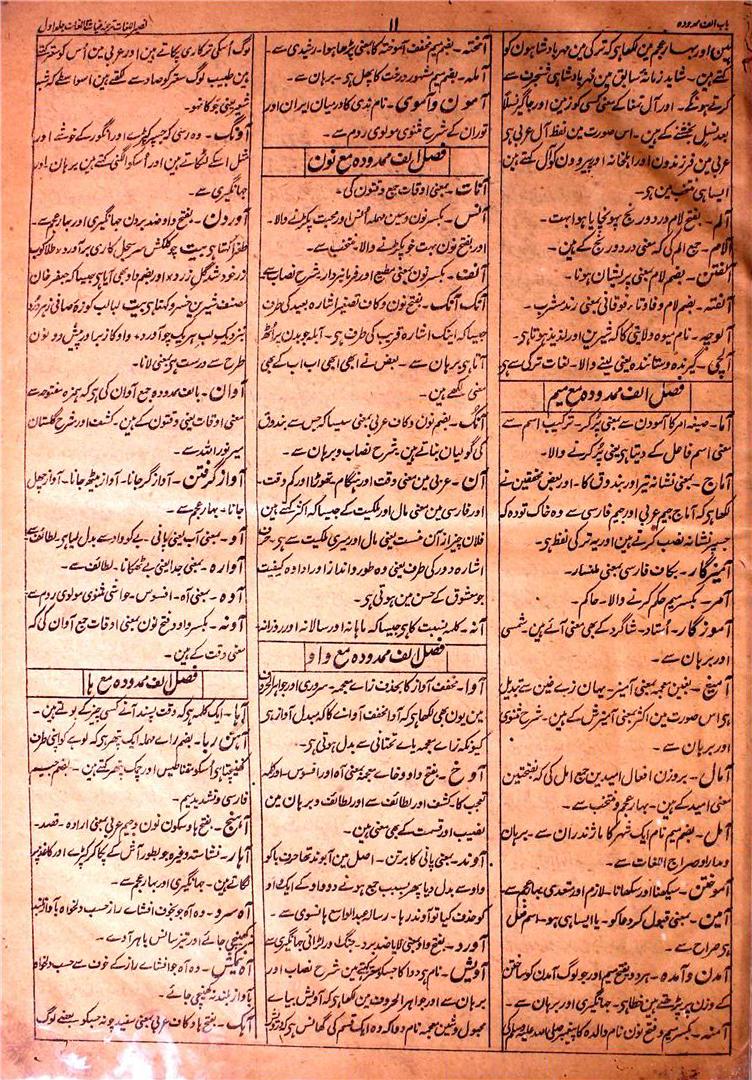 باب الف ممدودہ
۱۱
نصیر اللغات ترجمہ غیاث اللغات جلد اول
مین اور بہار عجم مین لکھا ہے کہ ترکی مین مہر بادشاہون کو
کہتے ہین۔ شاید زمانۂ سابق مین مہر بادشاہی شنجرف سے
کرتے ہونگے۔ اور آل تمغا کے معنے کسی کو زمین اور جاگیر نسلاً
بعد نسل بخشنے کے ہین۔ اس صورت مین لفظ آل عربی ہے
عربی مین فرزندون اور اہلخانہ اور پیروون کو آل کہتے ہین
ایسا ہی منتخب مین ہے۔
آلم۔ بفتح لام درد و رنج پہونچایا ہوا بہت۔
آلام۔ جمع الم کی کہ معنی درد و رنج کے ہین۔
آلفتن۔ بضم لام بمعنی پریشان ہونا۔
آلفتہ۔ بضم لام و فا و تاء فوقانی بمعنی رند مشرب۔
آلوچہ۔ نام میوہ ولایتی کا کہ شیرین اور لذیذ ہوتا ہی۔
آلچی۔ گیرندہ و ستانندہ یعنی لینے والا۔ لغات ترکی سے ہی
فصل الف ممدودہ مع میم
آما۔ صیغہ امر کا آمودن سے بمعنی پُر کر۔ ترکیب اسم سے
معنی اسم فاعل کے دیتا ہی یعنی پُر کرنے والا۔
آماج۔ بمعنی نشانہ تیر اور بندوق کا۔ اور بعض محققین نے
لکھا ہی کہ آماج جیم عربی اور جیم فارسی سے وہ خاک تودہ کہ
جسپر نشانہ نصب کرتے ہین اور یہ ترکی لفظ ہی۔
آمیزگار۔ بکاف فارسی بمعنی ملنسار۔
آمر۔ بکسر میم حکم کرنے والا۔ حاکم۔
آموزگار۔ اُستاد۔ شاگرد کے بھی معنی آئے ہین۔ شمسی
اور برہان سے۔
آمیغ۔ بغین معجمہ بمعنی آمیز۔ یہان زے غین سے تبدیل
ہی اس صورت مین اکثر بمعنی آمیزش کے ہین۔ شرح مثنوی
اور برہان سے۔
آمال۔ بروزن افعال امیدین جمع امل کی کہ بفتحتین
معنی امید کے ہین۔ بہار عجم و منتخب سے۔
آمل۔ بضم میم نام ایک شہر کا مازندران سے۔ برہان
و مدار اور سراج اللغات سے۔
آموختن۔ سیکھنا اور سکھانا۔ لازم اور متعدی بہار عجم سے
آمین۔ بمعنی قبول کر دعا کو۔ یا ایسا ہی ہو۔ اسم فعل
ہی صراح سے۔
آمدن و آمدہ۔ ہر دو بفتح میم اور جو لوگ آمدن کو ساختن
کے وزن پر پڑھتے ہین خطا ہی۔ جہانگیری اور برہان سے۔
آمنہ۔ بکسر میم و فتح نون نام والدہ کا پیغمبر صلی اللہ علیہ وسلم کی
آمختہ۔ بضم میم مخفف آموختہ کا بمعنی پڑھا ہوا۔ رشیدی سے۔
آملہ۔ بضم میم مشہور درخت کا پھل ہی۔ برہان سے۔
آمون و آموی۔ نام ندی کا درمیان ایران اور
توران کے شرح مثنوی مولوی روم سے۔
فصل الف ممدودہ مع نون
آنات۔ بمعنی اوقات جمع وقتون کی۔
آنس۔ بکسر نون و سین مہملہ اُنس اور محبت پکڑنے والا۔
اور بفتح نون بہت خو پکڑنے والا۔ منتخب سے۔
آنف۔ بکسر نون بمعنی مطیع اور فرمانبردار۔ شرح نصاب سے
آنک آنک۔ بفتح نون و کاف تصغیر اشارہ بعید کی طرف
جیسا کہ اینک اشارہ قریب کی طرف ہی۔ آبلہ جو بدن پر اُٹھ
آتا ہی برہان سے۔ بعض نے ابھی ابھی اب اب کے بھی
معنی لکھے ہین۔
آنُک۔ بضم نون و کاف عربی بمعنی سیسا کہ جس سے بندوق
کی گولیان بناتے ہین۔ شرح نصاب و برہان سے۔
آن۔ عربی مین معنی وقت اور ہنگام تھوڑا اور کم وقت۔
اور فارسی مین معنی مال اور ملکیت کے جیسا کہ اکثر کہتے ہین
فلان چیز از آن منست یعنی مال اور میری ملکیت سے ہی۔ حرف
اشارہ دور کی طرف یعنی وہ طور و انداز اور ادا وہ کیفیت
جو معشوق کے حسن مین ہوتی ہی۔
آنہ۔ کلمہ نسبت کا ہی جیسا کہ ماہانہ اور سالانہ اور روزانہ
فصل الف ممدودہ مع واو
آوا۔ مخفف آواز کا بحذف زاے معجمہ۔ سروری اور جواہر الحروف
مین یون بھی لکھا ہی کہ آوا مخفف آوائے کا کہ مبدل آواز ہی
کیونکہ زاے معجمہ یاے تحتانی سے بدل ہوتی ہی۔
آوخ۔ بفتح واو و خاے معجمہ بمعنی آہ اور افسوس۔ اور کلمہ
تعجب کا۔ کشف اور لطائف سے اور لطائف و برہان مین
نصیب اور قسمت کے بھی معنی ہین۔
آوند۔ بمعنی پانی کا برتن۔ اصل مین آبوند تھا حرف با کو
واو سے بدل دیا پھر بسبب جمع ہونے دو واو کے ایک واو
کو حذف کیا تو آوند رہا۔ رسالہ عبدالواسع ہانسوی سے۔
آورد۔ بفتح واو بمعنی لایا ضد برد۔ جنگ اور لڑائی جہانگیری سے
آویش۔ نام ہی دوا کا جسکو سعتر کہتے ہین شرح نصاب اور
برہان سے اور جواہر الحروف مین لکھا ہی کہ آویش بیاے
مجہول و شین معجمہ نام دوا کہ وہ ایک قسم کی گھانس ہی کہ
لوگ اسکی ترکاری پکاتے ہین اور عربی مین اُس کو سعتر کہتے
ہین طبیب لوگ سعتر کو صاد سے لکھتے ہین اسواسطے کہ شبہ
شعیر یعنی جو کا نہو۔
آونگ۔ وہ رسی کہ جسپر کپڑے اور انگور کے خوشے اور
مثل اسکے لٹکاتے ہین اور اُسکو الگنی کہتے ہین برہان اور
جہانگیری سے۔
آوردن۔ بفتح واو ضد بردن جہانگیری اور بہار عجم سے۔
طغرا کہتا ہی بیت
آوان۔ بالف ممدودہ جمع آوان کی ہی کہ ہمزہ مفتوحہ سے
معنی اوقات یعنی وقتون کے ہین۔ کشف اور شرح گلستان
میر نور اللہ سے۔
آواز گرفتن۔ آواز گر جانا۔ آواز بیٹھ جانا۔ آواز چھل
جانا۔ بہار عجم سے۔
آو۔ بمعنی آب یعنی پانی۔ بے کو واو سے بدل لیا ہی لطائف سے
آوارہ۔ بمعنی جدا یعنی بے ٹھکانا۔ لطائف سے۔
آوہ۔ بمعنی آہ۔ افسوس۔ حواشی مثنوی مولوی روم سے۔
آونہ۔ بکسر واو و فتح نون بمعنی اوقات جمع آوان کی کہ
معنی وقت کے ہین۔
فصل الف ممدودہ مع ہا
آہا۔ ایک کلمہ ہی کہ وقت پسند آنے کسی چیز کے بولتے ہین۔
آہن ربا۔ بضم راے مہملہ ایک پتھر ہی کہ لوہے کو اپنی طرف
کھینچتا ہی اُسکو مقناطیس اور چمک پتھر کہتے ہین۔ بضم جیم
فارسی و تشدید میم۔
آہنج۔ بفتح ہا و سکون نون و جیم عربی بمعنی ارادہ۔ قصد۔
آہار۔ نشاستہ وغیرہ جو بطور آش کے پکا کر کپڑے اور کاغذ پر
لگاتے ہین۔ جہانگیری اور بہار عجم سے۔
آہ سرد۔ وہ آہ جو بخوف افشاے راز حسب دلخواہ با آواز بلند
نہ کھینچی جائے اور تیز سانس باہر آوے۔
آہ نیمکش۔ وہ آہ جو افشاے راز کے خوف سے حسب دلخواہ
بآواز بلند نہ کھینچی جائے۔
آہک۔ بفتح ہا و کاف عربی بمعنی سفید چونہ جسکو بعضے لوگ